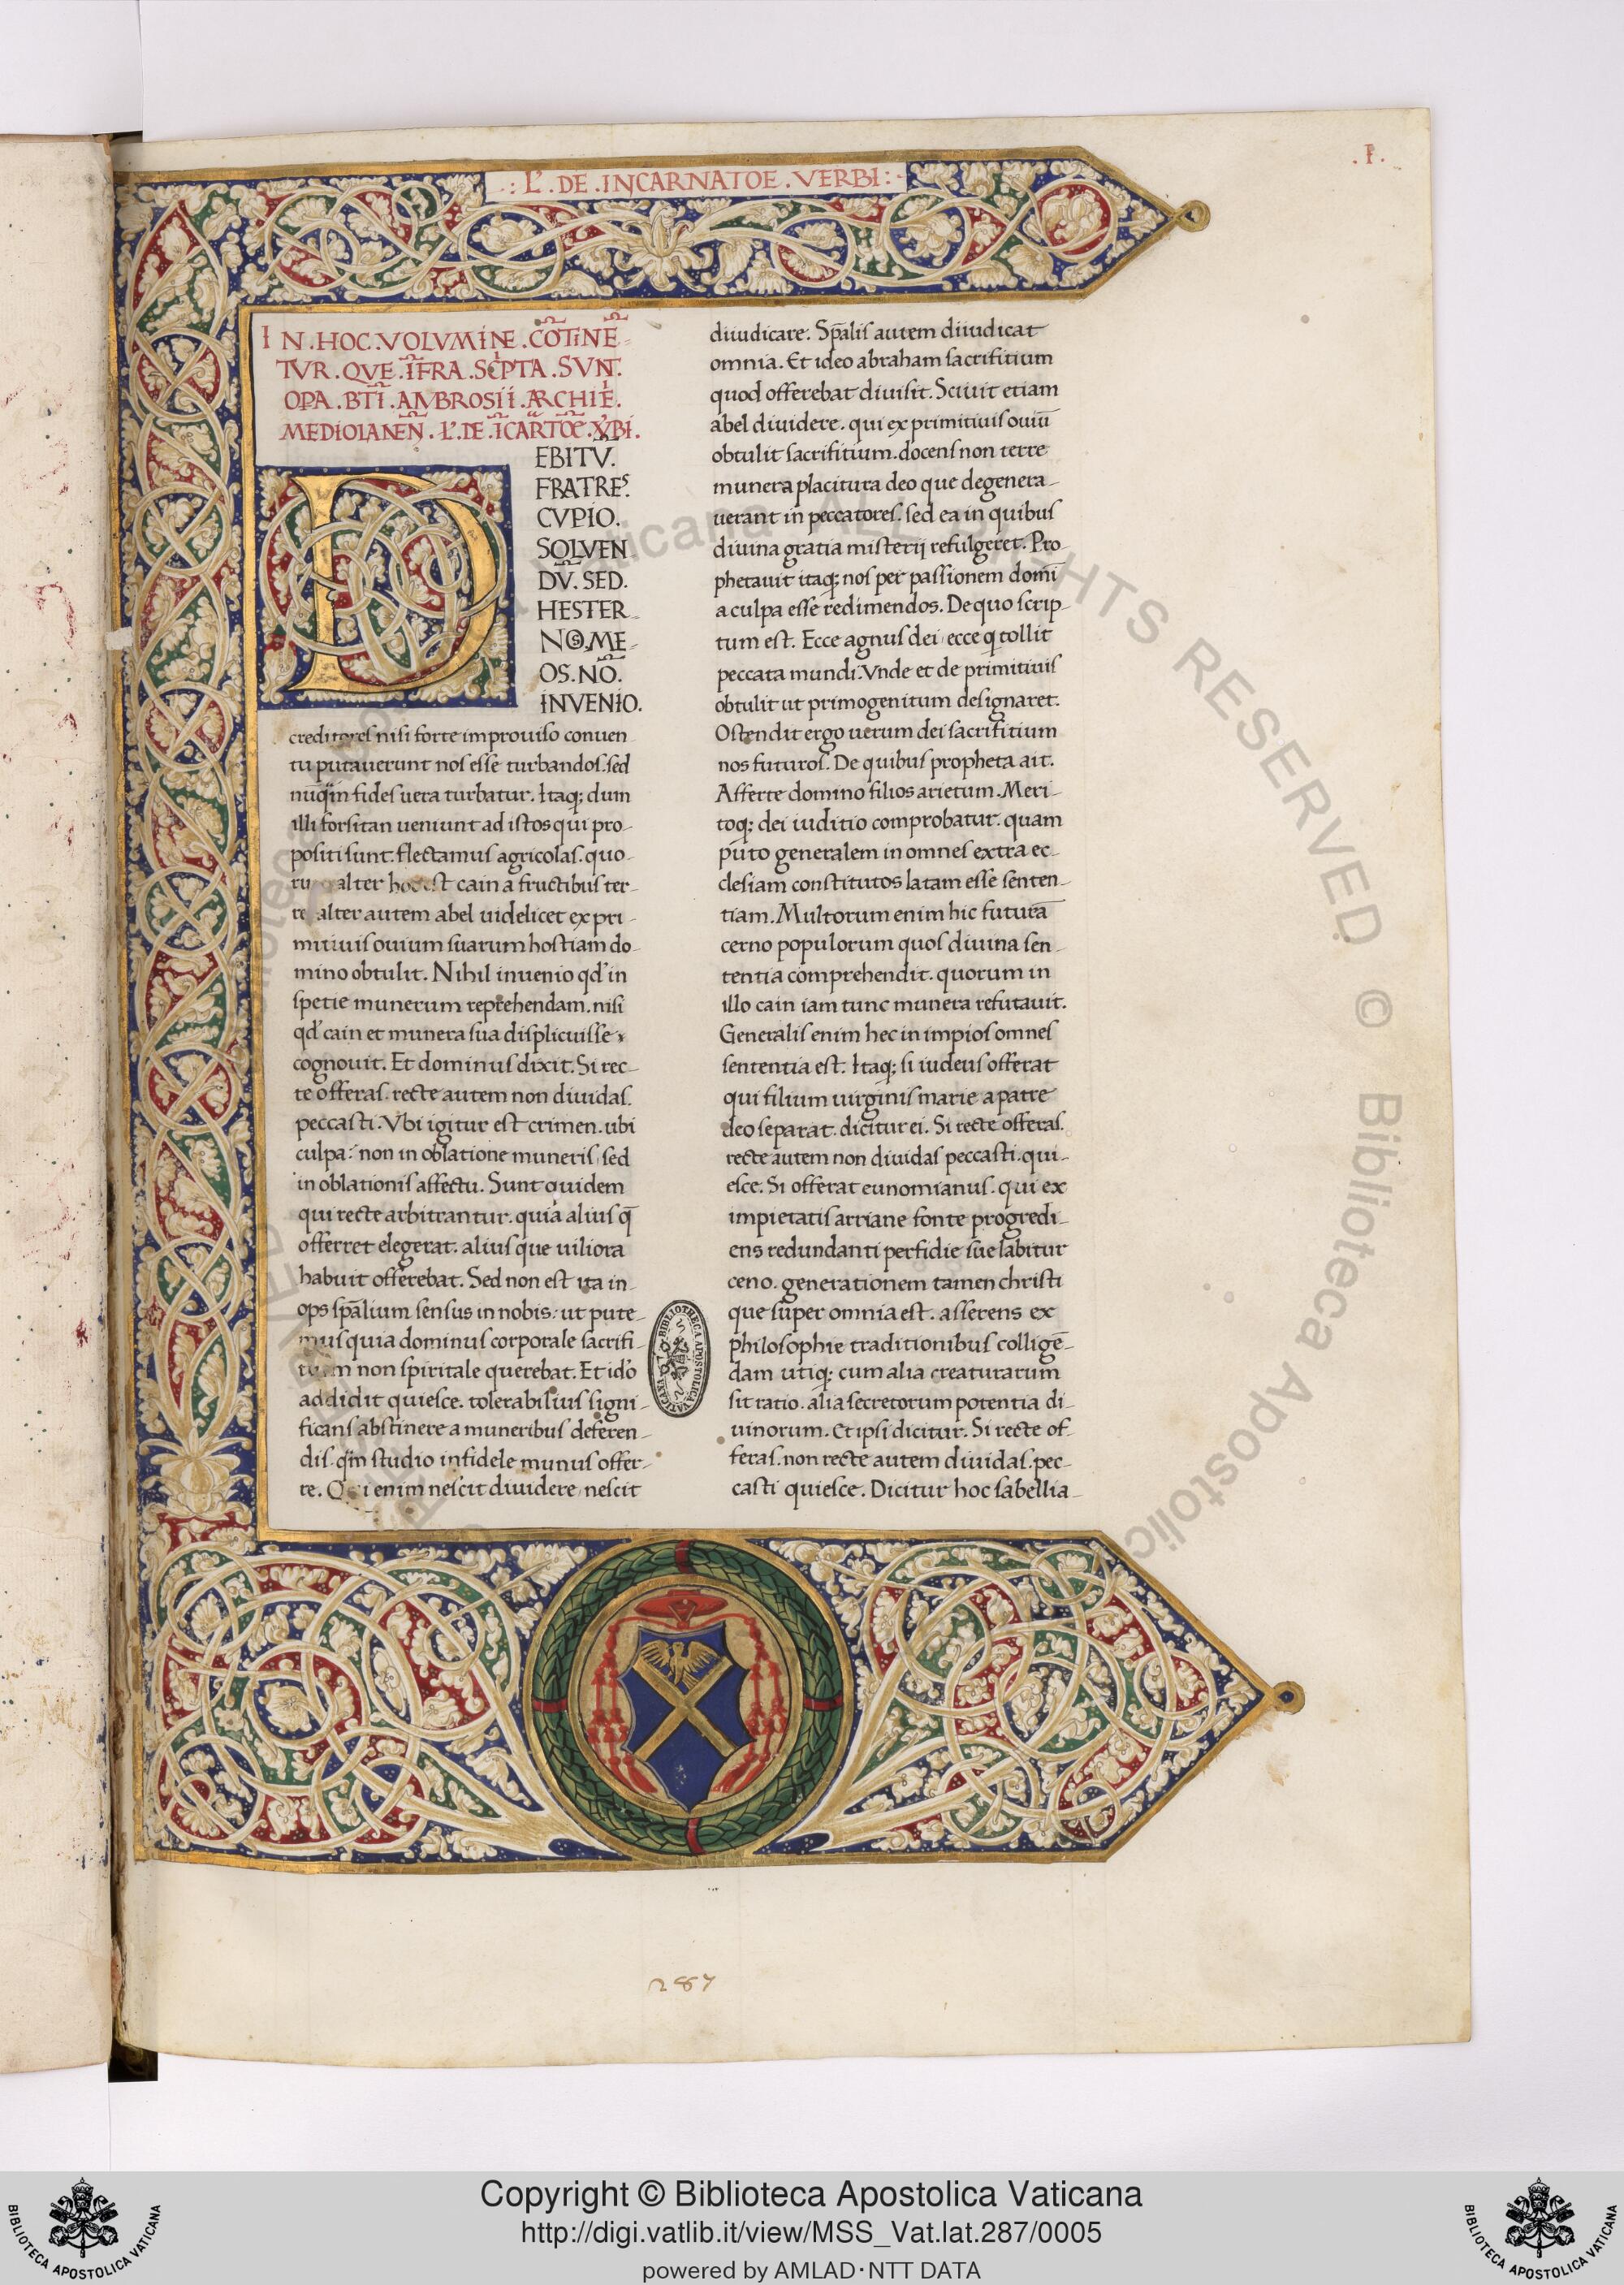 .I.
.:L'. DE. INCARNATOE. VERBI:.
IN. HOC. VOLVMINE. CŌTINĒ-
TVR. QVE. ĪFRA. SCPTA. SVNT.
OPA. BTI. AMBROSII. ARCHIĒ.
MEDIOLANEN̄. L'. DE. ĪCARTOE. V̄BI.
DEBITV̄.
FRATREˢ.
CVPIO.
SOLVEN
DV̄. SED.
HESTER-
NOS. ME-
OS. NŌ.
INVENIO.
creditores nisi forte improuiso conuen
tu putauerunt nos esse turbandos. sed
nūq̄ in fides uera turbatur. Itaq; dum
illi forsitan ueniunt ad istos qui pro-
positi sunt. flectamus agricolas. quo-
ru alter hoc est cain a fructibus ter-
re alter autem abel uidelicet ex pri-
mitiuis ouium suarum hostiam do-
mino obtulit. Nihil inuenio qd' in
spetie munerum reprehendam. nisi
qd' cain et munera sua displicuisse
cognouit. Et dominus dixit. Si rec-
te offeras. recte autem non diuidas.
peccasti. Vbi igitur est crimen. ubi
culpa? non in oblatione muneris, sed
in oblationis affectu. Sunt quidem
qui recte arbitrantur. quia alius q̄
offerret elegerat. alius que uiliora
habuit offerebat. Sed non est ita in-
ops sp̄alium sensus in nobis: ut pute-
mus quia dominus corporale sacrifi-
tium non spiritale querebat. Et ido
addidit quiesce. tolerabilius signi-
ficans abstinere a muneribus deferen-
dis. q̄m studio infidele munus offer-
re. Qui enim nescit diuidere, nescit
diiudicare. Sp̄alis autem diiudicat
omnia. Et ideo abraham sacrifitium
quod offerebat diuisit. Sciuit etiam
abel diuidere. qui ex primitiuis ouiū
obtulit sacrifitium. docens non terre
munera placitura deo que degenera-
uerant in peccatores. sed ea in quibus
diuina gratia misterij refulgeret. Pro-
phetauit itaq; nos per passionem domī
a culpa esse redimendos. De quo scrip-
tum est. Ecce agnus dei, ecce q tollit
peccata mundi. Vnde et de primitiuis
obtulit ut primogenitum designaret.
Ostendit ergo uerum dei sacrifitium
nos futuros. De quibus propheta ait.
Afferte domino filios arietum. Meri-
toq; dei iuditio comprobatur. quam
puto generalem in omnes extra ec-
clesiam constitutos latam esse senten-
tiam. Multorum enim hic futurā
cerno populorum quos diuina sen-
tentia comprehendit. quorum in
illo cain iam tunc munera refutauit.
Generalis enim hec in impios omnes
sententia est. Itaq; si iudeus offerat
qui filium uirginis marie a patre
deo separat. dicitur ei. Si recte offeras.
recte autem non diuidas peccasti. qui-
esce. Si offerat eunomianus. qui ex
impietatis arriane fonte progredi-
ens redundanti perfidie sue labitur
ceno. generationem tamen christi
que super omnia est. asserens ex
philosophie traditionibus colligē-
dam utiq; cum alia creaturarum
sit ratio. alia secretorum potentia di-
uinorum. Et ipsi dicitur. Si recte of-
feras. non recte autem diuidas. pec-
casti quiesce. Dicitur hoc sabellia-
287
BIBLIOTHECA APOSTOLICA VATICANA
Copyright © Biblioteca Apostolica Vaticana
http://digi.vatlib.it/view/MSS_Vat.lat.287/0005
powered by AMLAD·NTT DATA
BIBLIOTECA APOSTOLICA VATICANA
BIBLIOTECA APOSTOLICA VATICANA